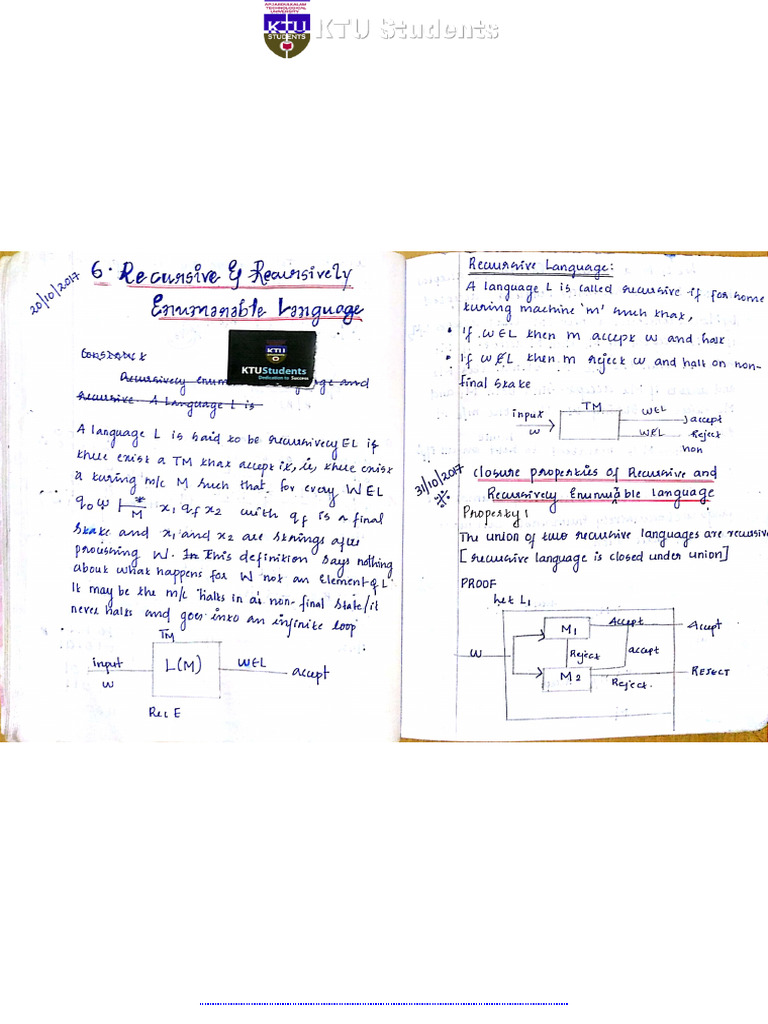 APJ ABDUL KALAM
TECHNOLOGICAL
UNIVERSITY
KTU
STUDENTS
KTU Students
20/10/2017
6. Recursive & Recursively
Enumarable Language
KTU
KTUStudents
Dedication to Success
Recursively enum
recursive. A Language L is
A language L is said to be recursively EL if
there exist a TM that accept it, ie, there exist
a turing m/c M such that. for every WEL
q0 w ⊢*M x1 qf x2 with qf is a final
state and x1 and x2 are strings after
processing W. In this definition says nothing
about what happens for W not an element of L
It may be the m/c halts in a non-final state/it
never halts and goes into an infinite loop
TM
input
w
L(M)
WEL
accept
Rec E
Recursive Language:
A language L is called recursive if for some
turing machine 'm' such that,
• If WEL then m accept w and halt
• If W∉L then m reject w and halt on non-
final state
input
w
TM
WEL
accept
WEL
Reject
non
31/10/2017
closure properties of Recursive and
Recursively Enumuable language
Property 1
The union of two recursive languages are recursive
[recursive language is closed under union]
PROOF
Let L1
W
M1
Accept
Accept
Reject
accept
M2
Reject.
REJECT